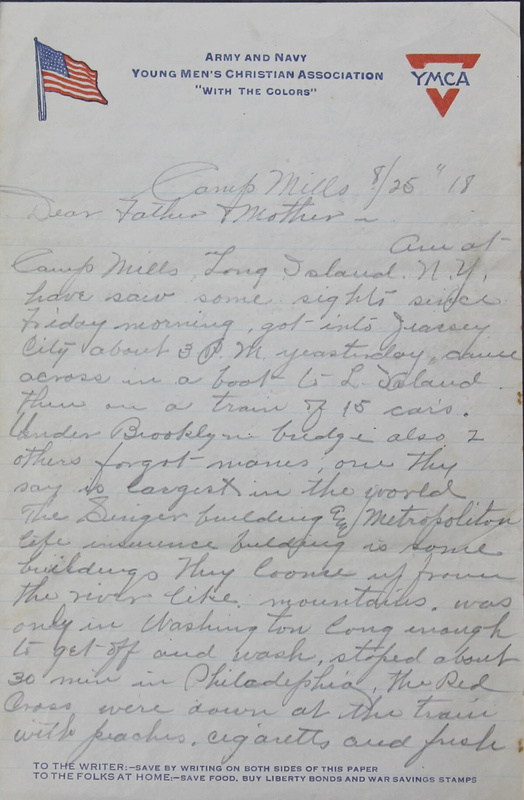 ARMY AND NAVY
YOUNG MEN'S CHRISTIAN ASSOCIATION
"WITH THE COLORS"
YMCA
Camp Mills 8/25" 18
Dear Father & Mother ~
Am at
Camp Mills, Long Island. N.Y.
have saw some sights since
Friday morning, got into Jearsey
City about 3 P.M. yeasterday, came
across in a boat to L. Island.
then on a train of 15 cars.
Under Brooklyn bridge also 2
others forgot manes, one thy
say is largest in the world
The Singer building & Metropoliton
life insurence building is some
buildings they loome up from
the river like mountains. was
only in Washington long enough
to get off and wash, stoped about
30 min in Philadephia, the Red
Cross were down at the train
with peaches, cigaretts and fresh
TO THE WRITER:—SAVE BY WRITING ON BOTH SIDES OF THIS PAPER
TO THE FOLKS AT HOME:—SAVE FOOD, BUY LIBERTY BONDS AND WAR SAVINGS STAMPS